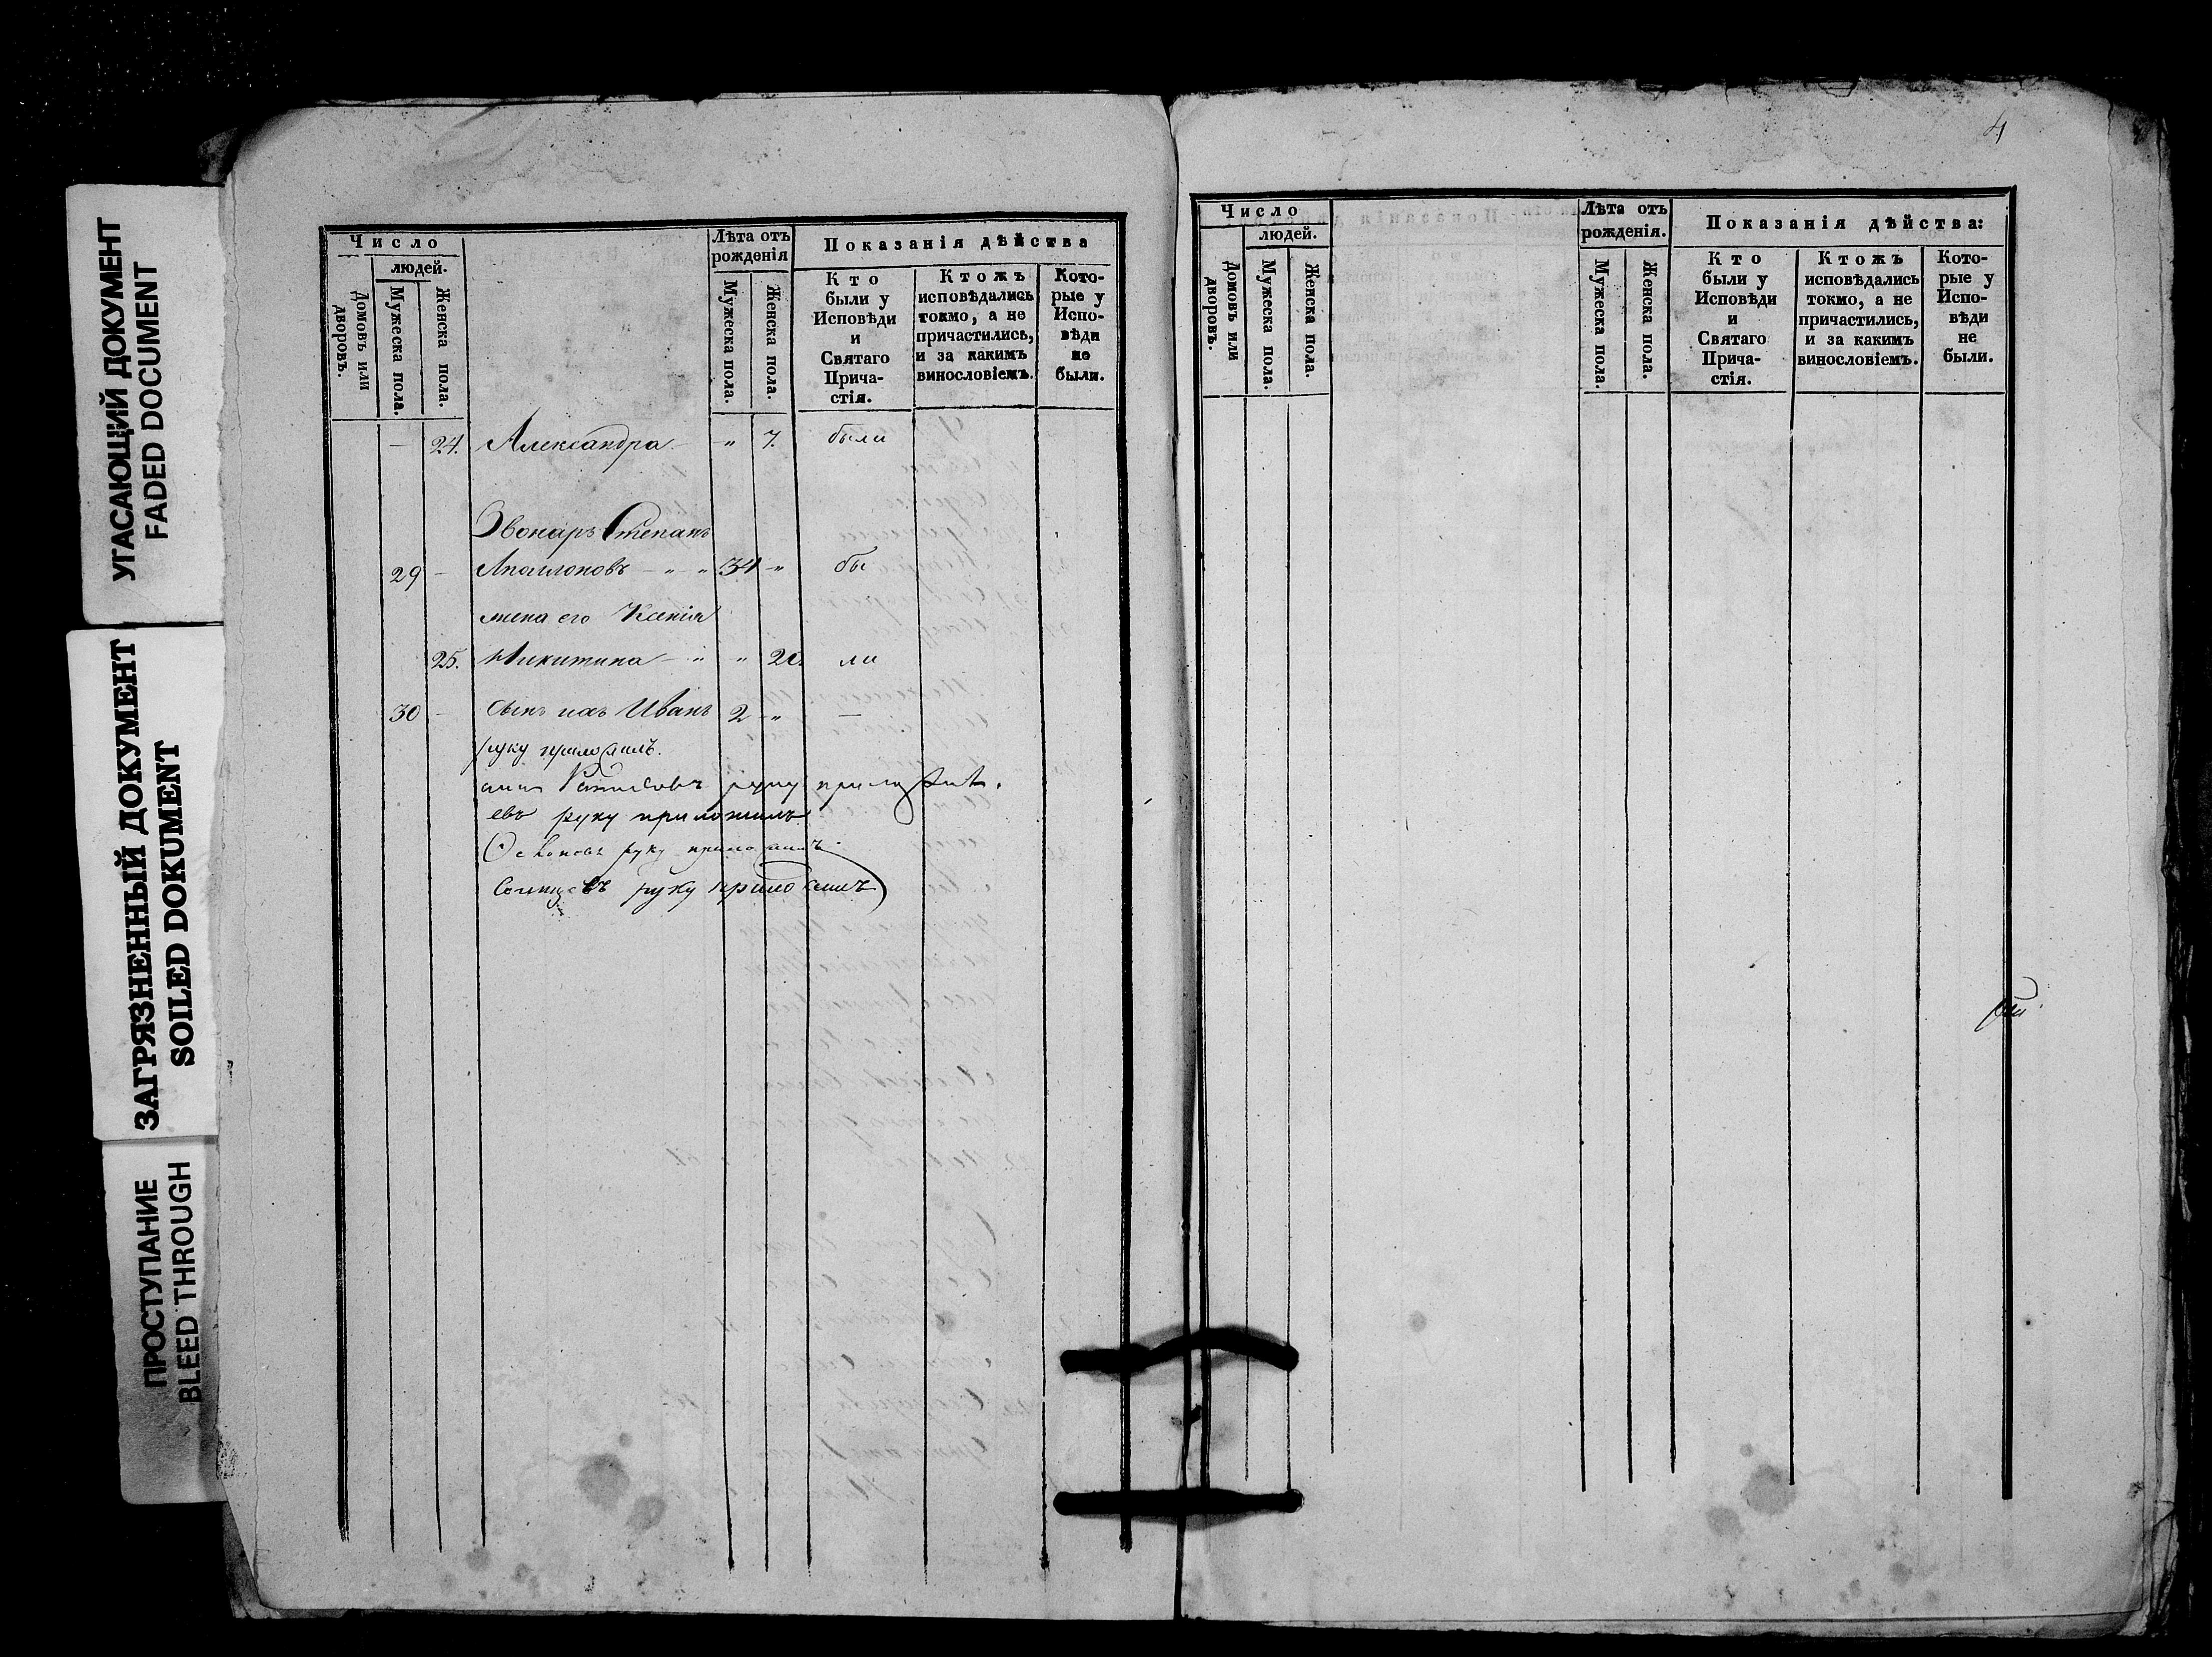 УГАСАЮЩИЙ ДОКУМЕНТ
FADED DOCUMENT
ЗАГРЯЗНЕННЫЙ ДОКУМЕНТ
SOILED DOKUMENT
ПРОСТУПАНИЕ
BLEED THROUGH
Число
людей.
Домовъ или дворовъ.
Мужеска пола.
Женска пола.
Лѣта отъ рожденія
Мужеска пола.
Женска пола.
Показанія дѣйства
Кто были у Исповѣди и Святаго Прича-стія.
Ктожъ исповѣдались токмо, а не причастились, и за какимъ винословіемъ.
Кото-рые у Испо-вѣди не были.
— 24. Александра — " 7. были
Звонарь Степанъ
29 — Аполлоновъ — " " 34 " бы
жена его Ксенія
25. Никитина — " " 20. ли
30 — сынъ ихъ Иванъ 2 " —
руку приложилъ.
руку приложилъ.
евъ руку приложилъ
руку приложилъ.
руку приложилъ
4
Число
людей.
Домовъ или дворовъ.
Мужеска пола.
Женска пола.
Лѣта отъ рожденія.
Мужеска пола.
Женска пола.
Показанія дѣйства:
Кто были у Исповѣди и Святаго Прича-стія.
Ктожъ исповѣдались токмо, а не причастились, и за какимъ винословіемъ.
Кото-рые у Испо-вѣди не были.